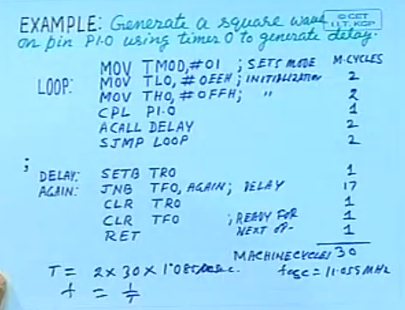 EXAMPLE: Generate a square wave
© CET
I.I.T. KGP
on pin P1.0 using timer 0 to generate delay.
MOV TMOD,#01 ; SETS MODE M-CYCLES
LOOP: MOV TL0, #0EEH ; INITIALIZATION 2
MOV TH0, #0FFH; " 2
CPL P1.0 1
ACALL DELAY 2
SJMP LOOP 2
;
DELAY: SETB TR0 1
AGAIN: JNB TF0, AGAIN; DELAY 17
CLR TR0 1
CLR TF0 ; READY FOR 1
RET NEXT OP- 1
MACHINE CYCLES 30
T = 2 x 30 x 1.085 sec. fosc = 11.055 MHz
f = 1/T